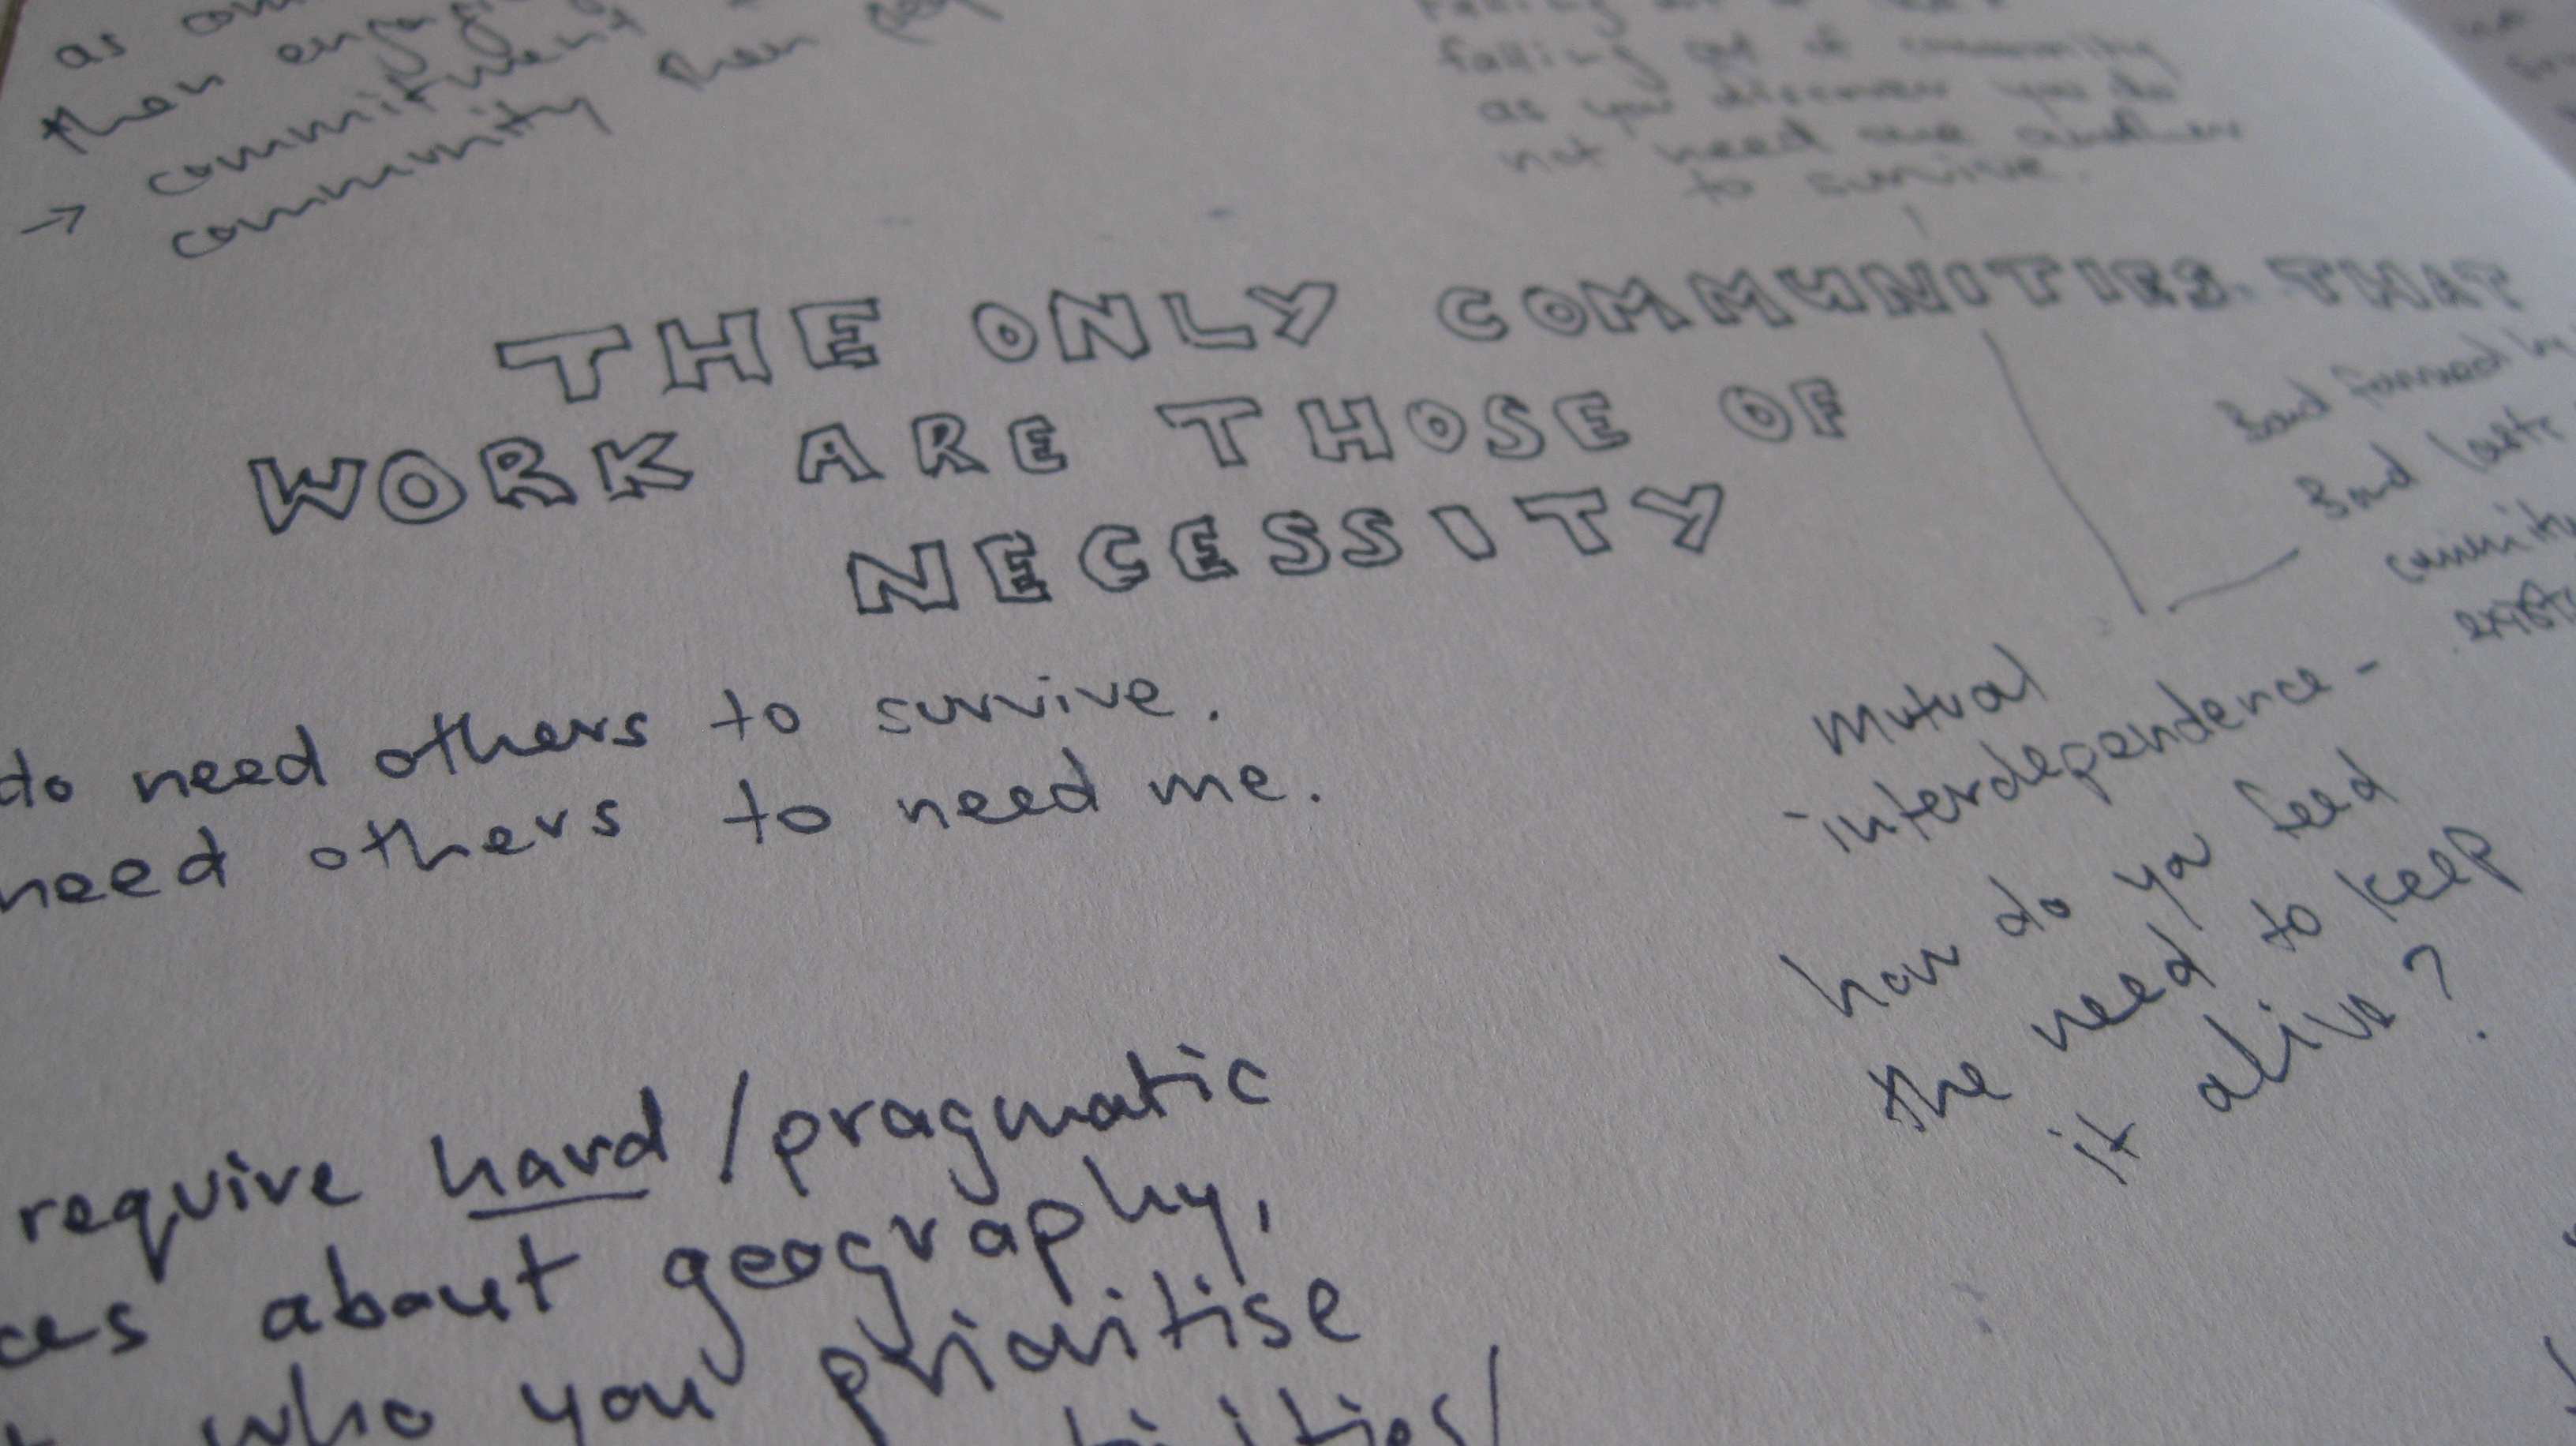 as
then
→ commitment
community then
falling out of community
as you discover you do
not need one another
to survive.
THE ONLY COMMUNITIES THAT
WORK ARE THOSE OF
NECESSITY
Bond formed
Bond lasts
do need others to survive.
need others to need me.
Mutual
interdependence -
how do you feed
the need to keep
it alive?
require hard / pragmatic
about geography,
who you prioritise